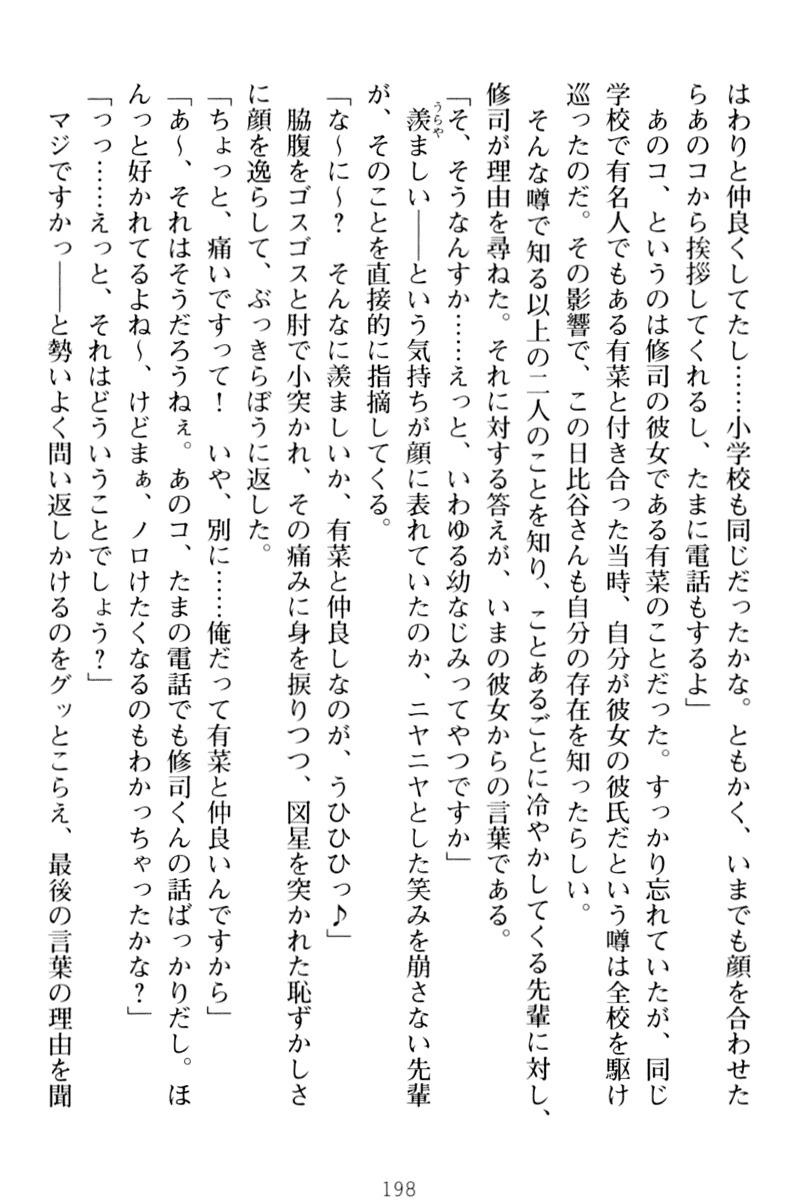 はわりと仲良くしてたし……小学校も同じだったかな。ともかく、いまでも顔を合わせた
らあのコから挨拶してくれるし、たまに電話もするよ」
　あのコ、というのは修司の彼女である有菜のことだった。すっかり忘れていたが、同じ
学校で有名人でもある有菜と付き合った当時、自分が彼女の彼氏だという噂は全校を駆け
巡ったのだ。その影響で、この日比谷さんも自分の存在を知ったらしい。
　そんな噂で知る以上の二人のことを知り、ことあるごとに冷やかしてくる先輩に対し、
修司が理由を尋ねた。それに対する答えが、いまの彼女からの言葉である。
「そ、そうなんすか……えっと、いわゆる幼なじみってやつですか」
　羨ましい――という気持ちが顔に表れていたのか、ニヤニヤとした笑みを崩さない先輩
うらや
が、そのことを直接的に指摘してくる。
「な〜に〜？　そんなに羨ましいか、有菜と仲良しなのが、うひひひっ♪」
　脇腹をゴスゴスと肘で小突かれ、その痛みに身を捩りつつ、図星を突かれた恥ずかしさ
に顔を逸らして、ぶっきらぼうに返した。
「ちょっと、痛いですって！　いや、別に……俺だって有菜と仲良いんですから」
「あ〜、それはそうだろうねぇ。あのコ、たまの電話でも修司くんの話ばっかりだし。ほ
んっと好かれてるよね〜、けどまぁ、ノロけたくなるのもわかっちゃったかな？」
「っっ……えっと、それはどういうことでしょう？」
　マジですかっ――と勢いよく問い返しかけるのをグッとこらえ、最後の言葉の理由を聞
198